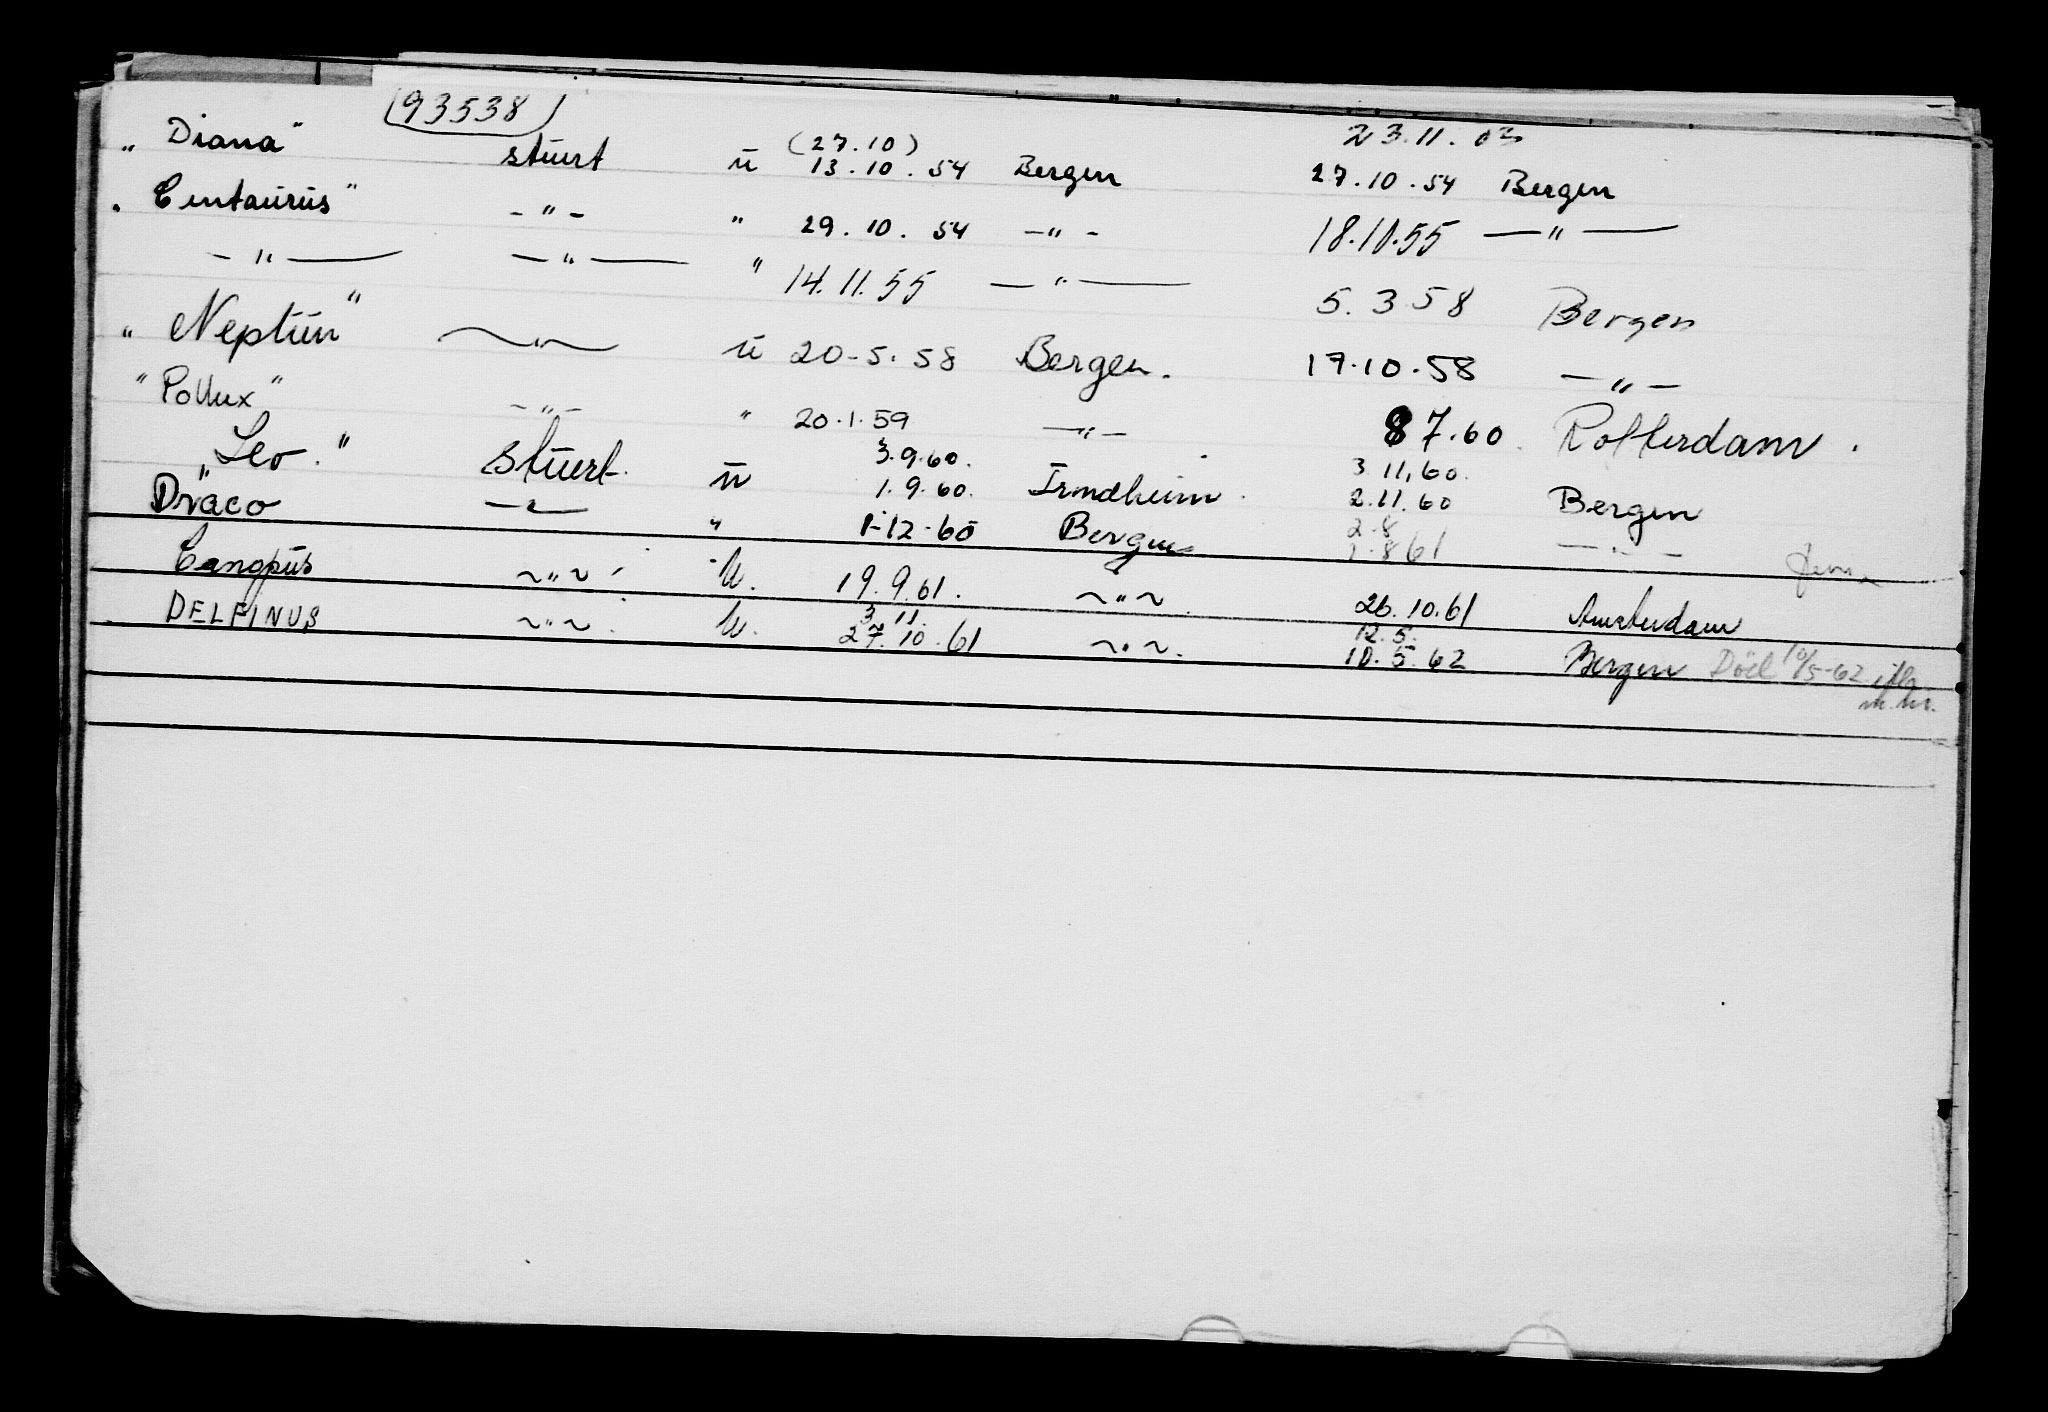 93538
23.11.03
(27.10)
"Diana" stuert u 13.10.54 Bergen 27.10.54 Bergen
"Centaurus" -"- " 29.10.54 -"- 18.10.55 -"-
-"- -"- " 14.11.55 -"- 5.3.58 Bergen
"Neptun" -"- u 20-5.58 Bergen. 17.10.58 -"-
"Pollux" -"- " 20.1.59 -"- 8 7.60. Rotterdam.
3.9.60. 3.11.60.
"Leo." Stuert. u 1.9.60. Trondheim. 2.11.60 Bergen
2.8
Draco -"- " 1-12-60 Bergen 1.861 -"-
Canopus ~"~ U. 19.9.61. ~"~ 26.10.61 Amsterdam
3.11. 12.5.
DELFINUS ~"~ U. 27.10.61 ~"~. 10.5.62 Bergen Död 10/5-62 iflg.